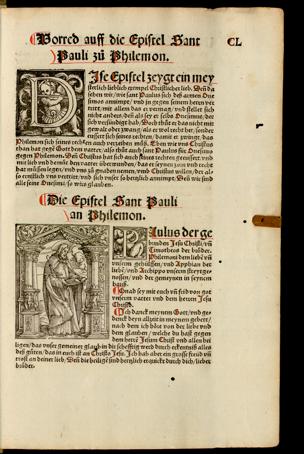 Vorred auff die Epistel Sant CL
Pauli zů Philemon.
Dise Epistel zeygt ein mey
sterlich lieblich exempel Christlicher lieb. Den da
sehen wir, wie sant Paulus sich des armen One
simos annimpt, und in gegen seinem herrn ver
trit, mit allem das er vermag, und stellet sich
nicht anders, denn als sey er selbs Onesimus, der
sich versündiget hab. Doch thůt er das nicht mit
gewalt oder zwang, als er wol recht het, sonder
eussert sich seines rechten, damit er zwingt, das
Philemon sich seines rechten auch verzeihen můß. Eben wie uns Christus
than hat gegen Gott dem vatter, also thůt auch sant Paulus für Onesimo
gegen Philemon. Den Christus hat sich auch seines rechten geeussert, und
mit lieb und
so
alle seine Onesimi, so wirs glauben.
Die Epistel Sant Pauli
an Philemon.
Paulus der ge
bunden Jesu Christi, un
Timotheos der bůder.
Philemoni dem liebē un
unserm gehülffen, und Apphian der
liebē, und Archippo unserm streytge-
nossen, und der gemeynen in seynem
hauß.
Gnad sey mit euch un frid von got
unserem vatter und dem herren Jesu
Christ.
Ich danck meynem Gott, und ge-
denck deyn allzeit in meynem gebett,
nach dem ich hör von der liebe und
dem glauben, welche du hast gegen
dem herrē Jesum Christ und allen hei
ligen, das unser gemeiner glaub in dir schefftig werd durch erkentniß alles
des gůten, das in euch ist an Christo Jesu. Ich hab aber ein grosse freud un
trost an deiner lieb, Den die heilige sind hertzlich erquickt durch dich, lieber
bůder.